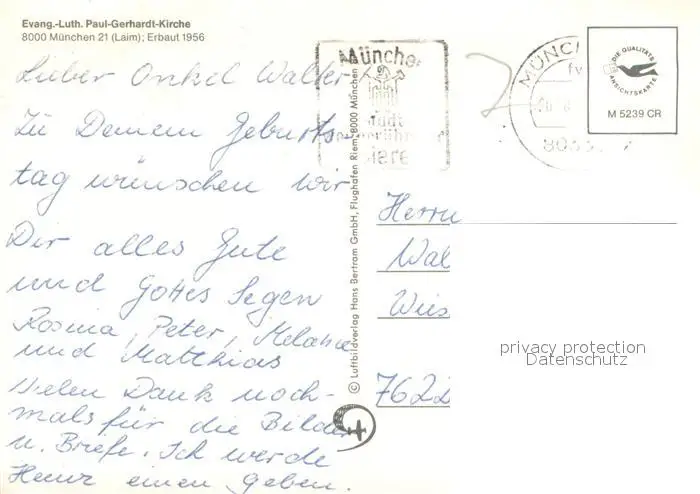 Evang.-Luth. Paul-Gerhardt-Kirche
8000 München 21 (Laim); Erbaut 1956
Lieber Onkel Walter
Zu Deinem Geburts-
tag wünschen wir
Dir alles Gute
und Gottes Segen
Rosina, Peter, Melanie
und Matthias
Vielen Dank noch-
mals für die Bilder
u. Briefe. Ich werde
Heinz einen geben.
© Luftbildverlag Hans Bertram GmbH, Flughafen Riem, 8000 München
München
Stadt
MÜNC
DIE QUALITÄTS
ANSICHTSKARTE
M 5239 CR
Herrn
Wal
Wies
7622
privacy protection
Datenschutz